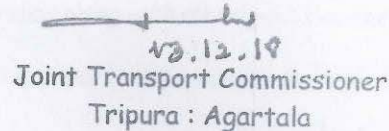 13.12.18
Joint Transport Commissioner
Tripura : Agartala